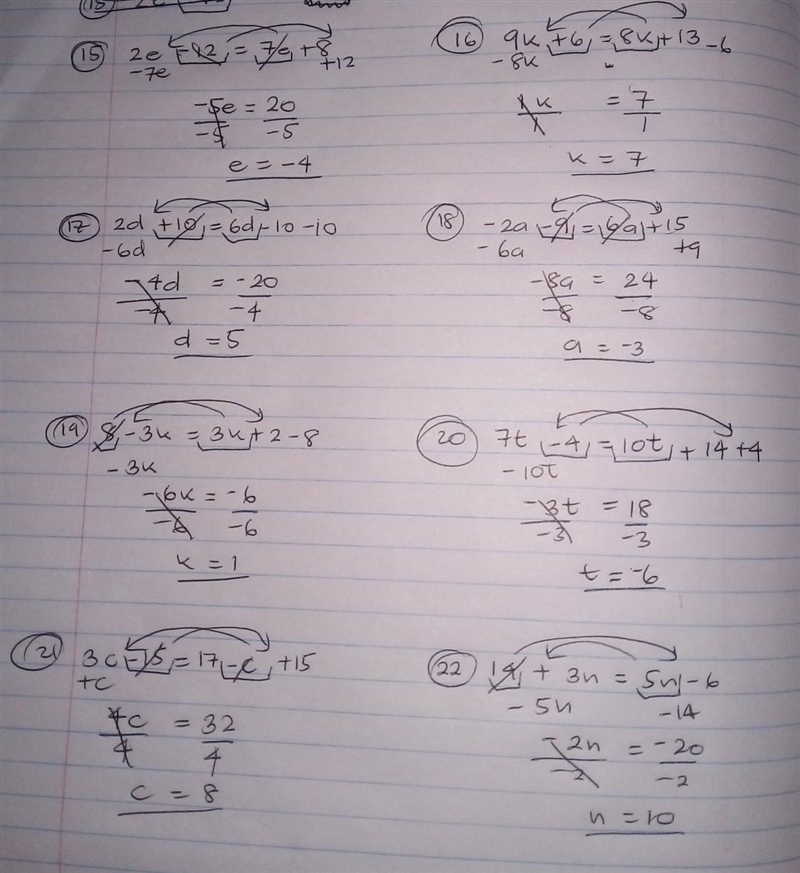 15 2e -12 = 7e +8
-7e +12
-5e = 20
-5 -5
e = -4
16 9k +6 = 8k +13 -6
-8k
1k = 7
1 1
k = 7
17 2d +10 = 6d -10 -10
-6d
-4d = -20
-4 -4
d = 5
18 -2a -9 = 6a +15
-6a +9
-8a = 24
-8 -8
a = -3
19 8 -3k = 3k +2 -8
-3k
-6k = -6
-6 -6
k = 1
20 7t -4 = 10t + 14 +4
-10t
-3t = 18
-3 -3
t = -6
21 3c -15 = 17 -c +15
+c
4c = 32
4 4
c = 8
22 14 + 3n = 5n -6
-5n -14
-2n = -20
-2 -2
n = 10